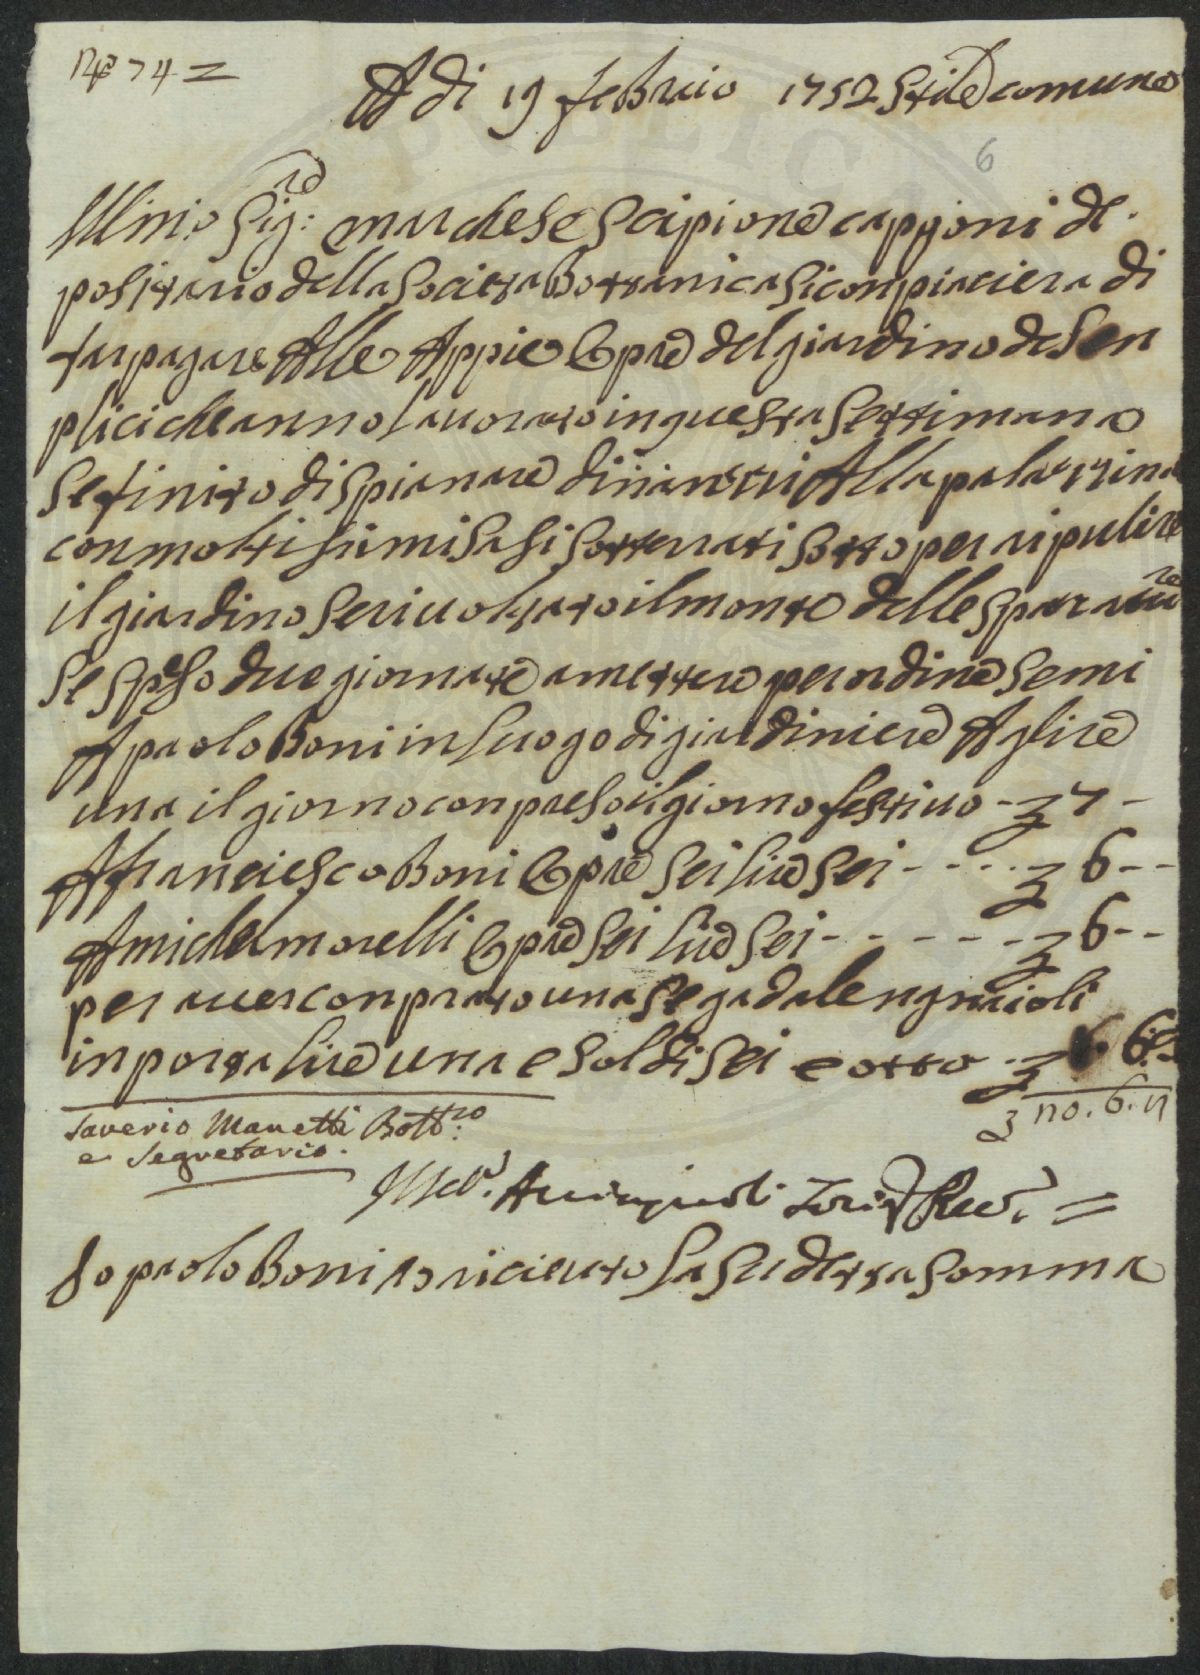 N° 74 =
A di 19 febraio 1752 Stile comune
6
Illmio Sig:re marchese Scipione capponi de
positario della Societta Bottanica si conpiaciera di
far pagare Alle Appie Opre del giardino de Sen
plici che anno lavorato in questa Settimana
Se finito di spianare dinanzi Alla palazzina
con moltisimi Sasi Sotterrati Sotto per ripulire
il giardino Se rivoltato il monte delle Spazature
Se Speso due giornate a mettere per ordine Semi
A paolo Boni in luogo di giardiniere A lire
una il giorno conpreso il giorno festivo - 7 -
A franciesco Boni Opre Sei lire Sei - - - - 6 - -
A michel morelli Opre Sei lire Sei - - - - - - 6 - -
per aver conprato una Sega da
in porta lire una e Soldi Sei e otto
Saverio Manetti Bott:co
e Segretario.
Io paolo Boni o ricieuto la Su detta Somma